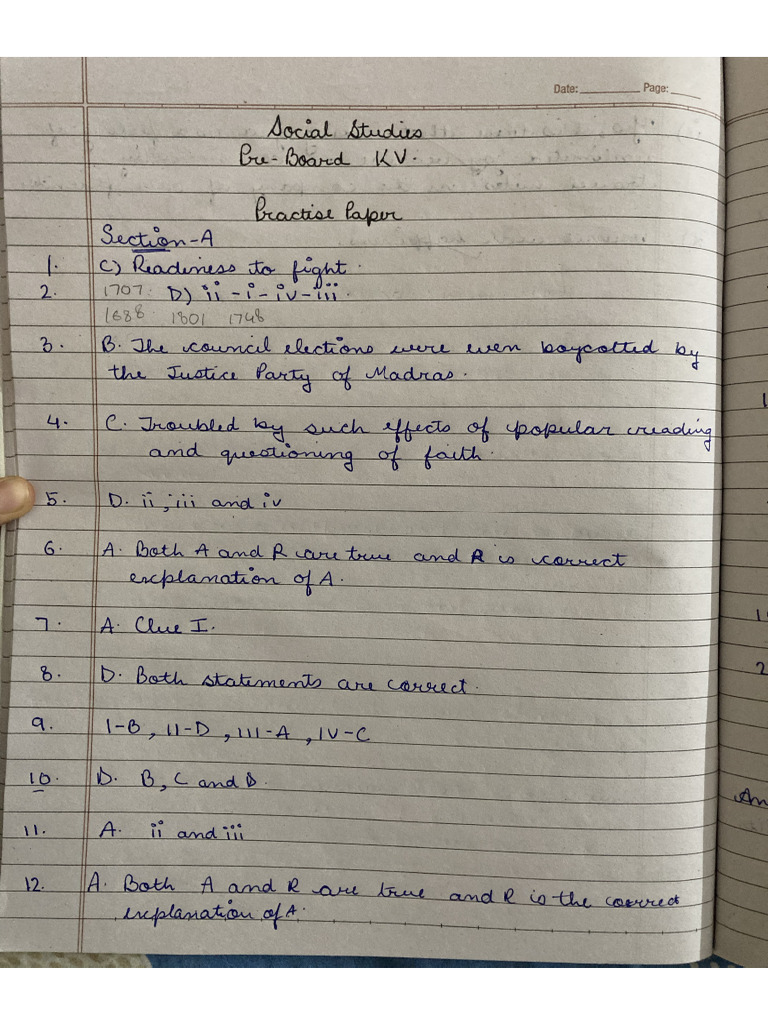 Date: ________ Page: _____
Social Studies
Pre-Board KV.
Practise Paper
Section-A
1. C) Readiness to fight.
2. 1707. D) ii - i - iv - iii.
1688. 1801 1748
3. B. The council elections were even boycotted by
the Justice Party of Madras.
4. C. Troubled by such effects of popular reading
and questioning of faith.
5. D. ii, iii and iv
6. A. Both A and R are true and R is correct
explanation of A.
7. A. Clue I.
8. D. Both statements are correct.
9. I-B, II-D, III-A, IV-C
10. D. B, C and D.
11. A. ii and iii
12. A. Both A and R are true and R is the correct
explanation of A.
An